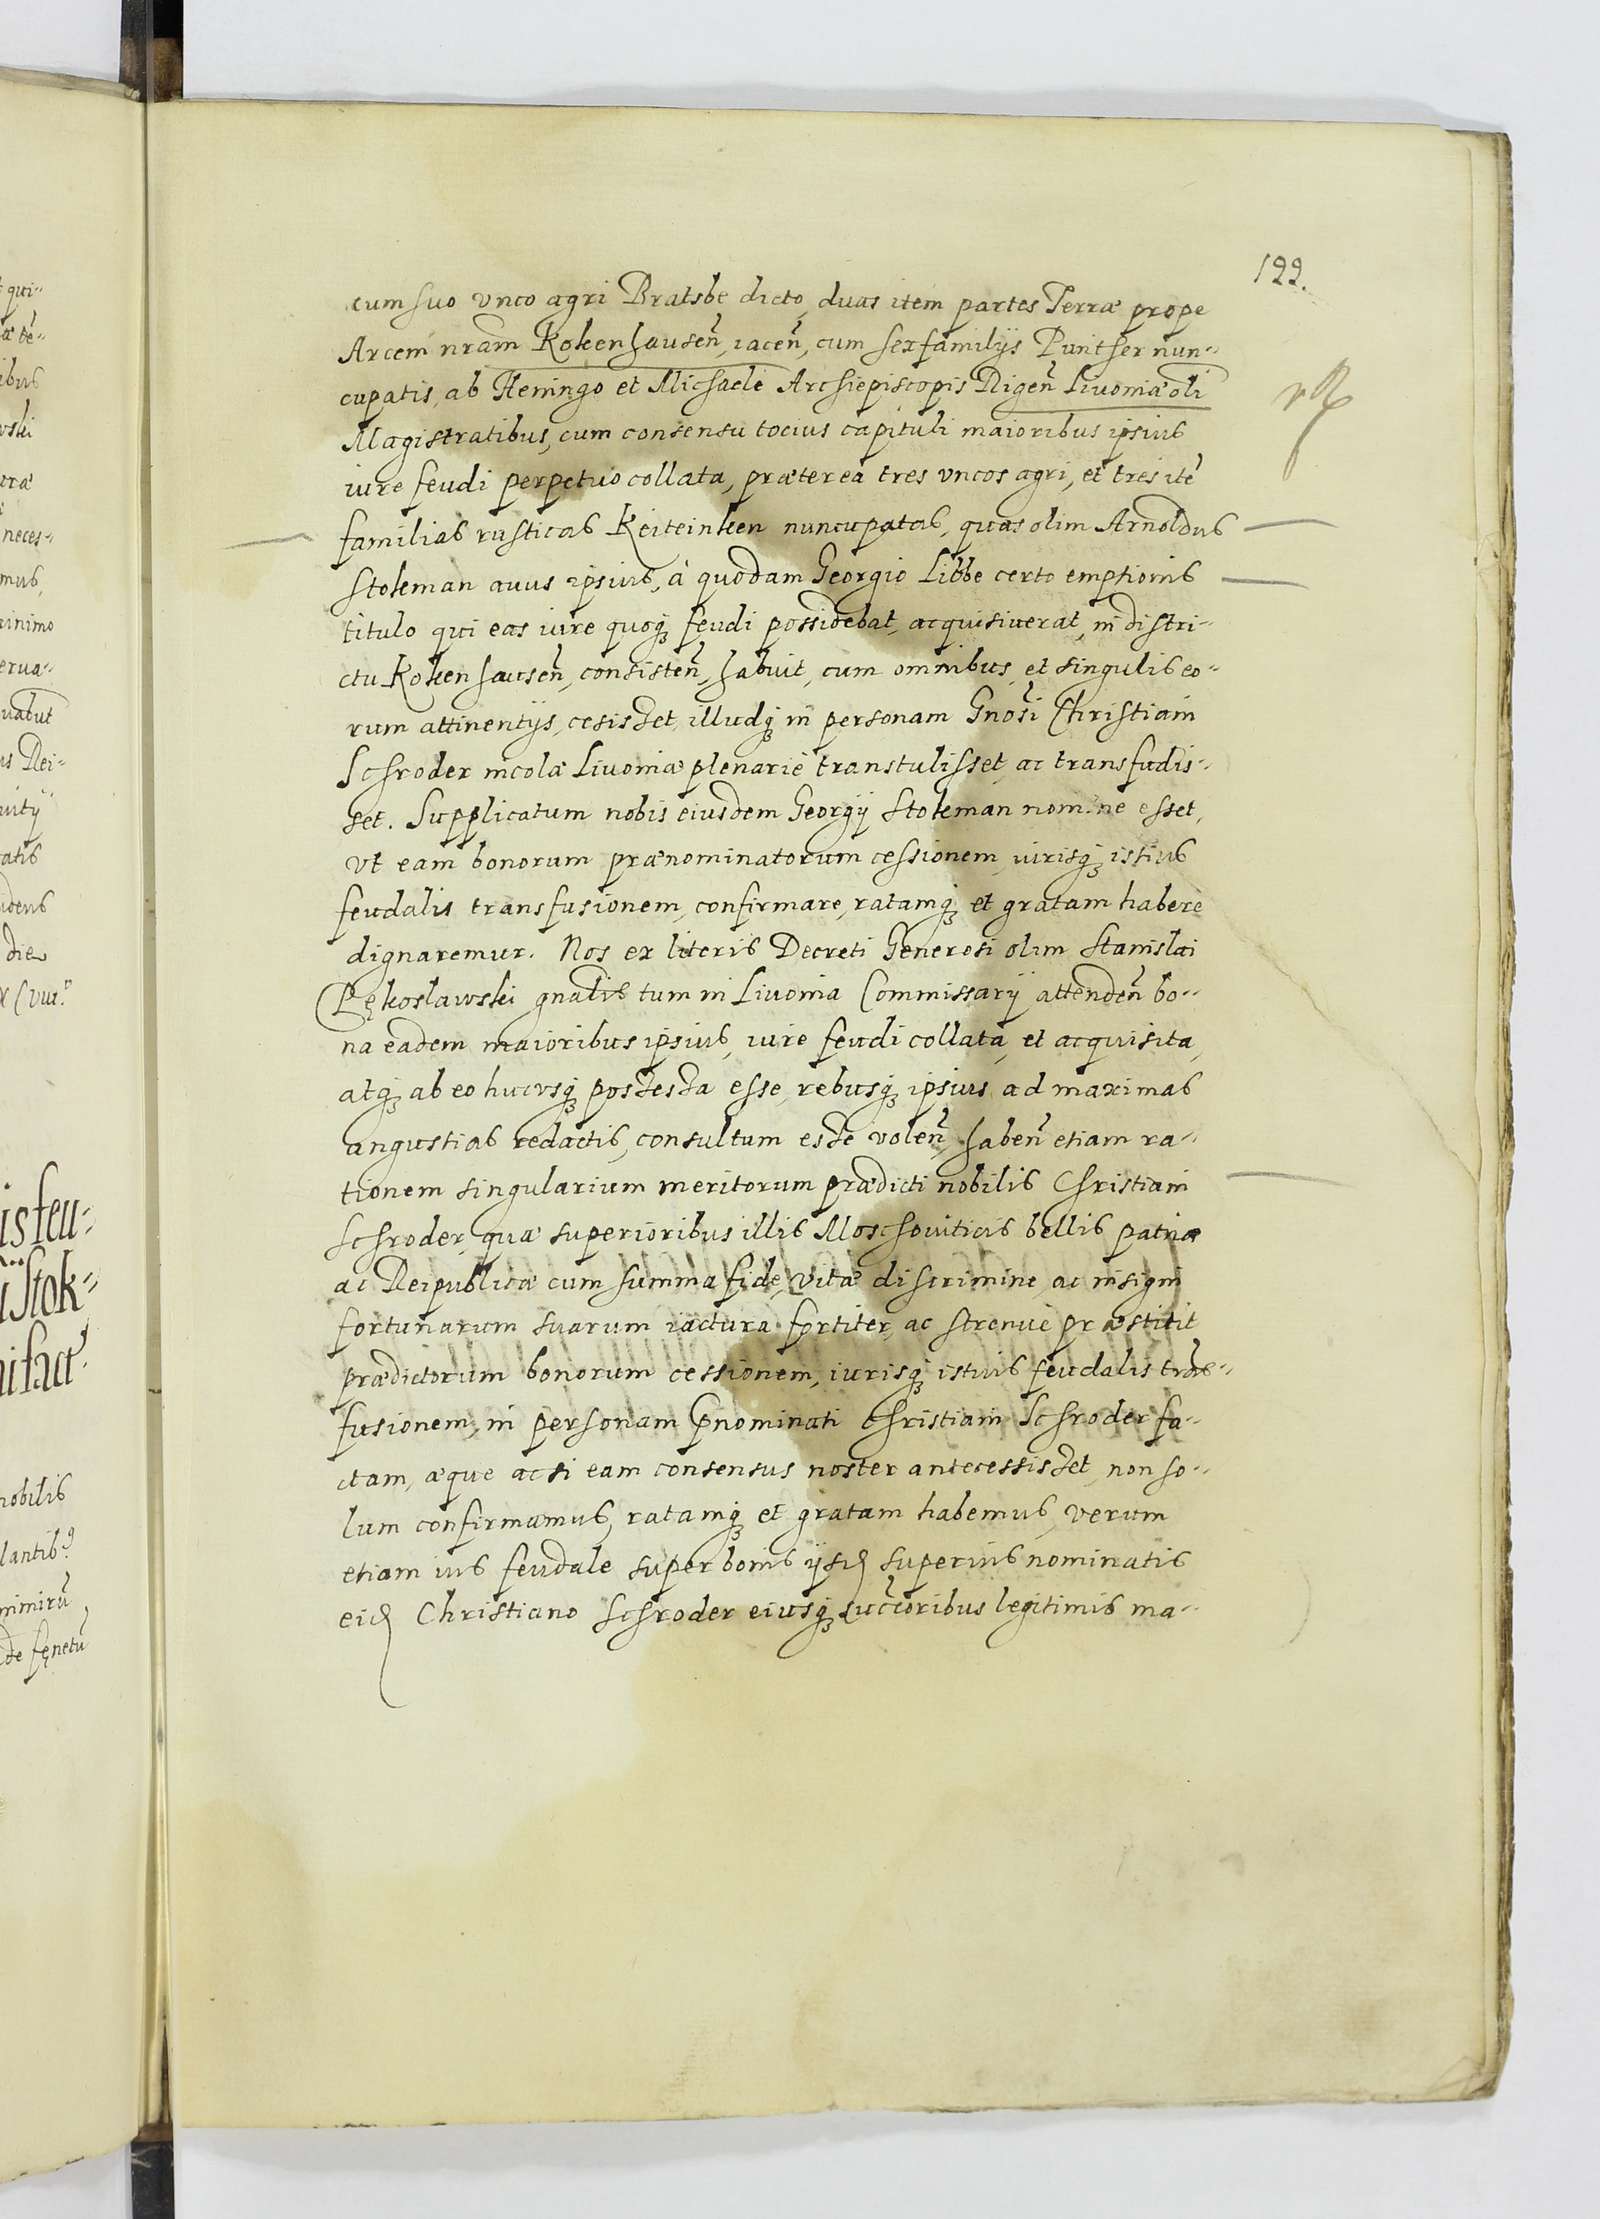 122.
cum suo vnco agri Bratsbe dicto, duas item partes Terræ prope
Arcem nram̃ Kokenhausen̄, iacen̄, cum sex familijs Puntser nun-
cupatis, ab Heningo et Michaele Archiepiscopis Rigen̄ Livoniæ oli
Magistratibus, cum consensu tocius capituli maioribus ipsius
iure feudi perpetuo collata, præterea tres vncos agri, et tres itē
familias rusticas Keiteinken nuncupatas, quas olim Arnoldus
Stokeman auus ipsius, à quodam Georgio Libbe certo emptionis
titulo qui eas iure quoqꝫ feudi possidebat, acquisiuerat, in distri-
ctu Kokenhausen̄, consisten̄, habuit, cum omnibus et singulis eo-
rum attinentijs, cesisset, illudqꝫ in personam Gnosi Christiani
Schroder incolæ Livoniæ plenariè transtulisset, ac transfudis-
set. Supplicatum nobis eiusdem Georgij Stokeman nomine esset,
vt eam bonorum prænominatorum cessionem, iurisqꝫ istius
feudalis transfusionem, confirmare, ratamqꝫ et gratam habere
dignaremur. Nos ex literis Decreti Generosi olim Stanislai
Pękoslawski gnalis tum in Livonia Commissarij attenden̄ bo-
na eadem maioribus ipsius, iure feudi collata, et acquisita,
atqꝫ ab eo hucvsqꝫ possessa esse, rebusqꝫ ipsius ad maximas
angustias redactis, consultum esse volen̄, haben̄ etiam ra-
tionem singularium meritorum prædicti nobilis Christiani
Schroder, quæ superioribus illis Moschoviticis bellis patriæ
ac Reipublicæ cum summa fide, vitæ discrimine, ac insigni
fortunarum suarum iactura fortiter, ac strenuè præstitit
prædictorum bonorum cessionem, iurisqꝫ istius feudalis trās-
fusionem, in personam p̄nominati Christiani Schroder fa-
ctam, æque ac si eam consensus noster antecessisset, non so-
lum confirmamus, ratamqꝫ et gratam habemus, verum
etiam ius feudale super bonis ijsd superius nominatis
eid Christiano Schroder eiusqꝫ succ̄oribus legitimis ma-